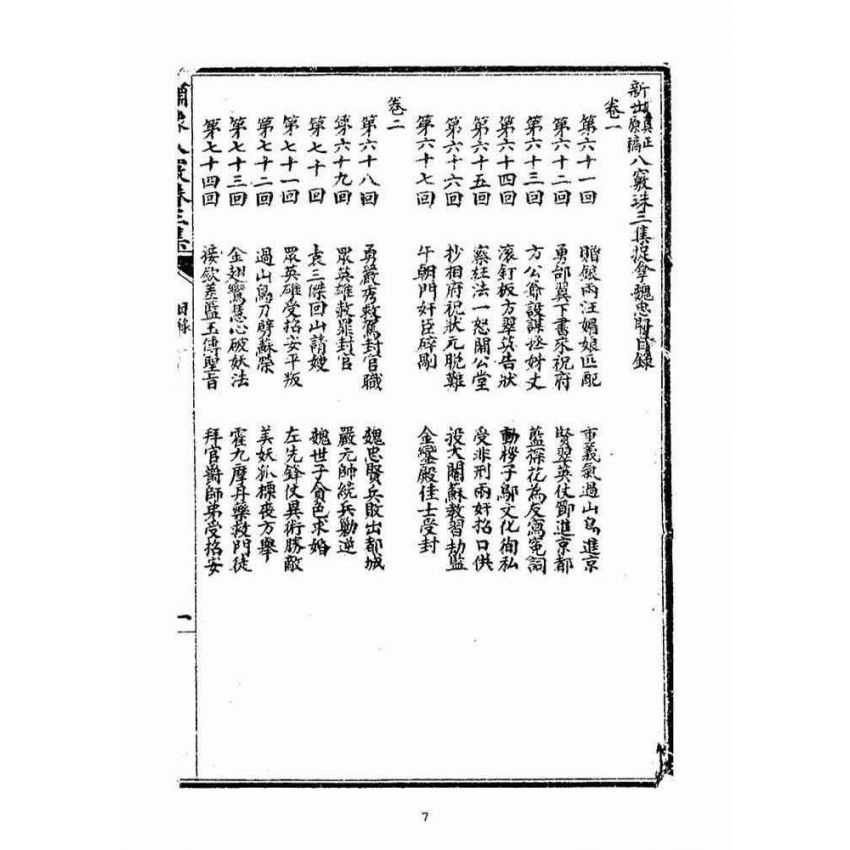 新出真正原稿八竅珠三集捉拿魏忠賢目錄
卷一
第六十一回 贈銀兩汪媚娘匹配 市義氣過山鳥進京
第六十二回 勇郃冀下書來祝府 賢翠英仗節進京都
第六十三回 方公爺設謀拯妤丈 藍蘇花為友寫冤詞
第六十四回 滾釘板方翠英告狀 動桚子鄔文化徇私
第六十五回 察枉法一怒鬧公堂 受非刑兩奸招口供
第六十六回 抄相府祝狀元脫難 設大鬧蘇教習劫監
第六十七回 午朝門奸臣碎剮 金鑾殿佳士受封
卷二
第六十八回 勇嚴秀救駕封官職 魏忠賢兵敗出都城
第六十九回 眾英雄救罪封官 嚴元帥統兵勦逆
第七十回 袁三傑回山請嫂 魏世子貪色求婚
第七十一回 眾英雄受招安平叛 左先鋒仗異術勝敵
第七十二回 過山鳥刀劈蘇榮 美妖狐標夜方舉
第七十三回 金翅鸞慧心破妖法 霍九摩丹藥救門徒
第七十四回 接欽差監王傳聖旨 拜官爵師弟受招安
繡像八竅珠三集
目錄
一
7